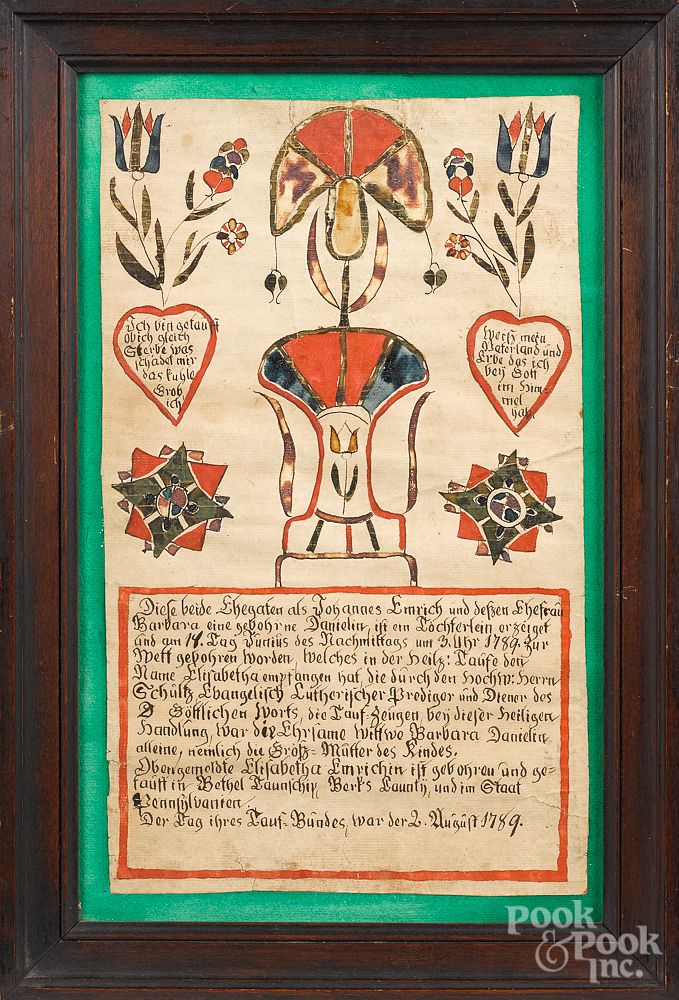 Ich bin getauft
ob ich gleich
Sterbe was
schadet mir
das kuhle
Grob
ich
Weiß mein
Vaterland und
Erbe das ich
bey Gott
im Him
mel
hab
Diese beide Ehegaten als Johannes Emrich und deßen Ehefrau
Barbara eine gebohrne Danielin, ist ein Töchterlein erzeiget
und am 14. Tag Junius des Nachmittags um 3. Uhr 1789. zur
Welt gebohren worden, welches in der Heilg: Taufe den
Name Elisabetha empfangen hat, die durch den Hochw: Herrn
Schültz Evangelisch Lutherischer Prediger und Diener des
Göttlichen Worts, die Tauf-Zeugen, bey dieser Heiligen
Handlung, war die Ehrsame Wittwe Barbara Danielin
alleine, nemlich die Groß-Mütter des Kindes.
Obengemeldte Elisabetha Emrichin ist gebohren und ge-
taufft in Bethel Taunschip, Berks Caunty, und im Staat
Pennsylvanien.
Der Tag ihres Tauf-Bundes, war der 2. August 1789.
POOK
& POOK
INC.